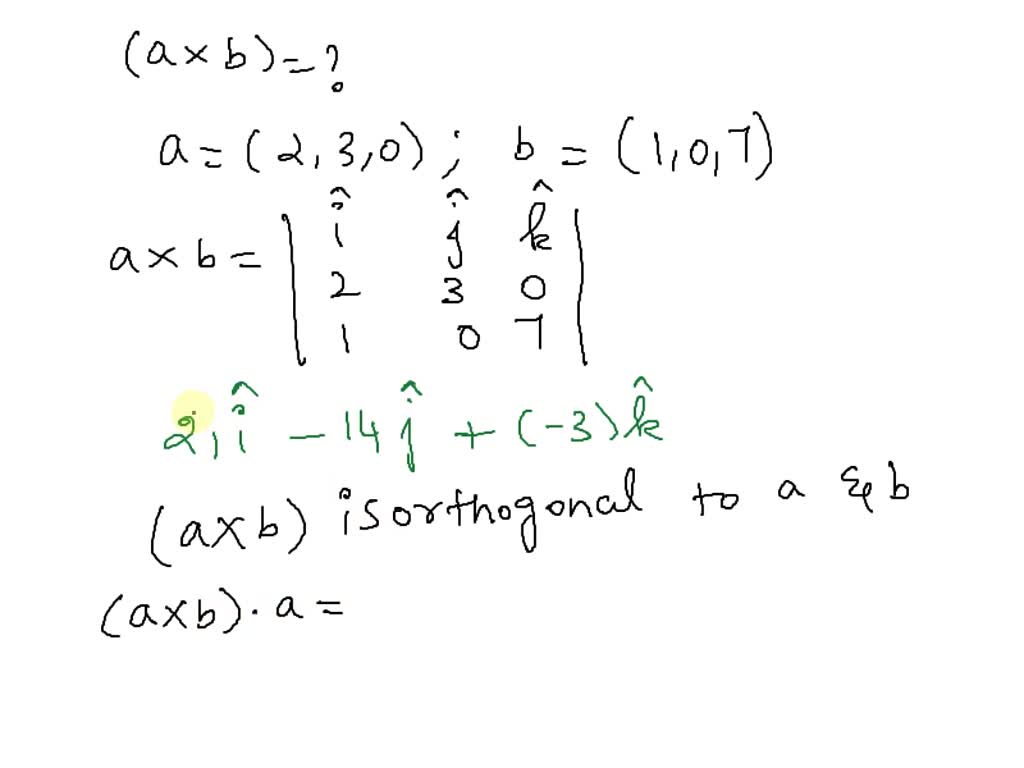 (a × b) = ?
a = (2, 3, 0) ; b = (1, 0, 7)
a × b = | î ĵ k̂ |
2 3 0
1 0 7
21 î − 14 ĵ + (−3) k̂
(a × b) is orthogonal to a & b
(a × b) · a =